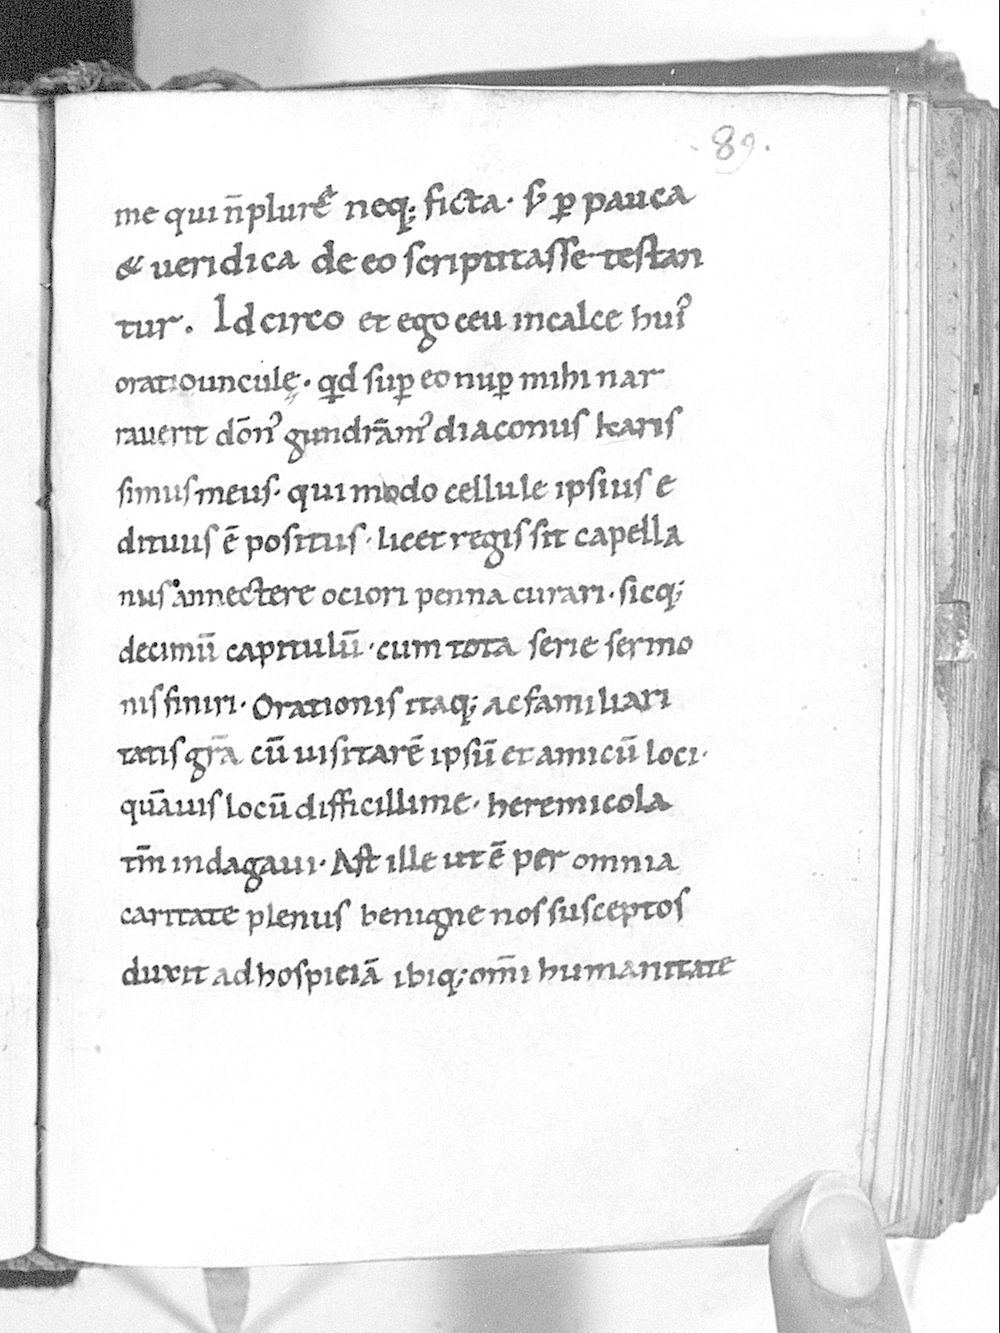 89.
me qui n̄ plurẽ neq; ficta· s; ꝑ pauca
& ueridica de eo scriptitasse testan
tur. Idcirco et ego ceu in calce huiꝰ
oratiounculę· qd sup eo nuꝑ mihi nar
rauerit dōnꝰ gundrāmꝰ diaconus karis
simus meus· qui modo cellule ipsius e
dituus ē positus· licet regis sit capella
nus annectere ociori penna curari· sicq;
decimū capitulū· cum tota serie sermo
nis finiri· Orationis itaq; ac familiari
tatis gr̄a cū uisitarē ipsū et amicū loci·
quāuis locū difficillime· heremicola
tm̄ indagaui· Ast ille ut ē per omnia
caritate plenus benigne nos susceptos
duxit ad hospiciā ibiq; om̄i humanitate